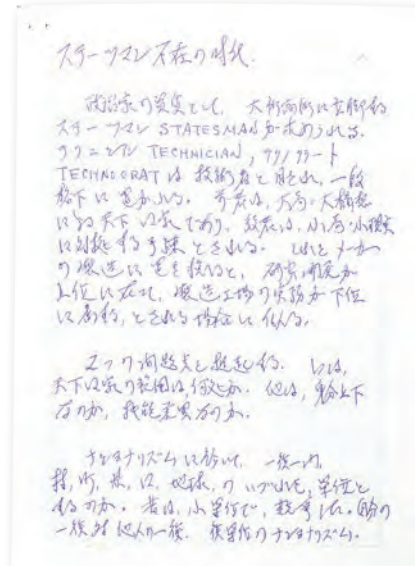 ステーツマン不在の時代.
政治家の資質として, 大術両術に立脚する
ステーツマン STATESMAN が求められる.
テクニシアン TECHNICIAN, テクノクラート
TECHNOCRAT は技術者と目され, 一段
格下に置かれる. 前者は, 大局・大極観
による天下国家であり, 後者は, 小局・小極観
に対処する手練とされる. これをメーカー
の構造に
研究開発が
上位に在って, 製造工場の実務が下位
に属する, とされる場合に似る.
2つの問題点を提起する. 1は,
天下国家の範囲は, 何処か. 他は,
上下
なのか, 機能差異なのか.
ナショナリズムに於いて, 一族一門,
村, 町, 県, 国, 地球, のいづれを, 単位と
するのか. 昔は, 小単位で,
一族対他人の一族.
のナショナリズム.